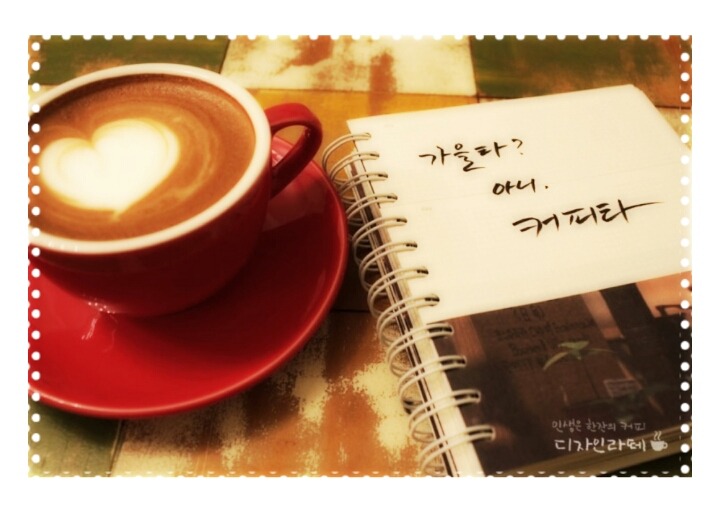 가을타?
아니.
커피타
인생은 한잔의 커피
디자인라떼